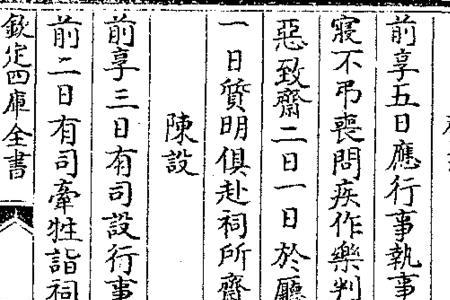 前享五日應行事執事
寢不弔喪問疾作樂判
惡致齋二日一日於廳
一日質明俱赴祠所齋
陳設
前享三日有司設行事
前二日有司牽牲詣祠
欽定四庫全書